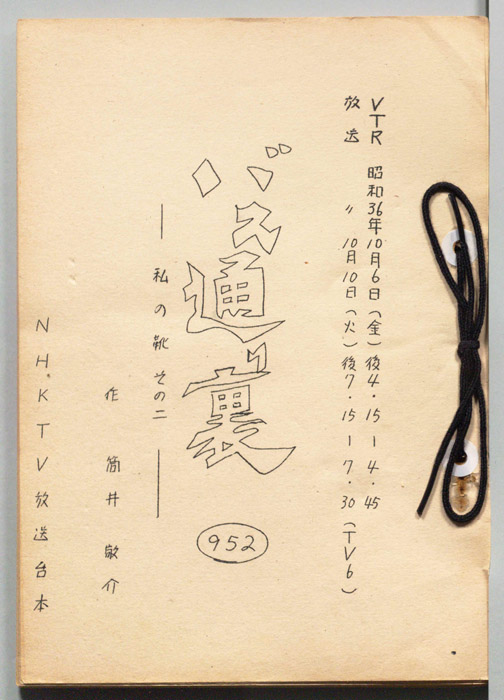 VTR 昭和36年10月6日(金)後4・15-4・45
放送 〃 10月10日(火)後7・15-7・30(TV6)
バス通り裏
―私の靴 その二―
952
作 筒井敬介
NHK TV放送台本